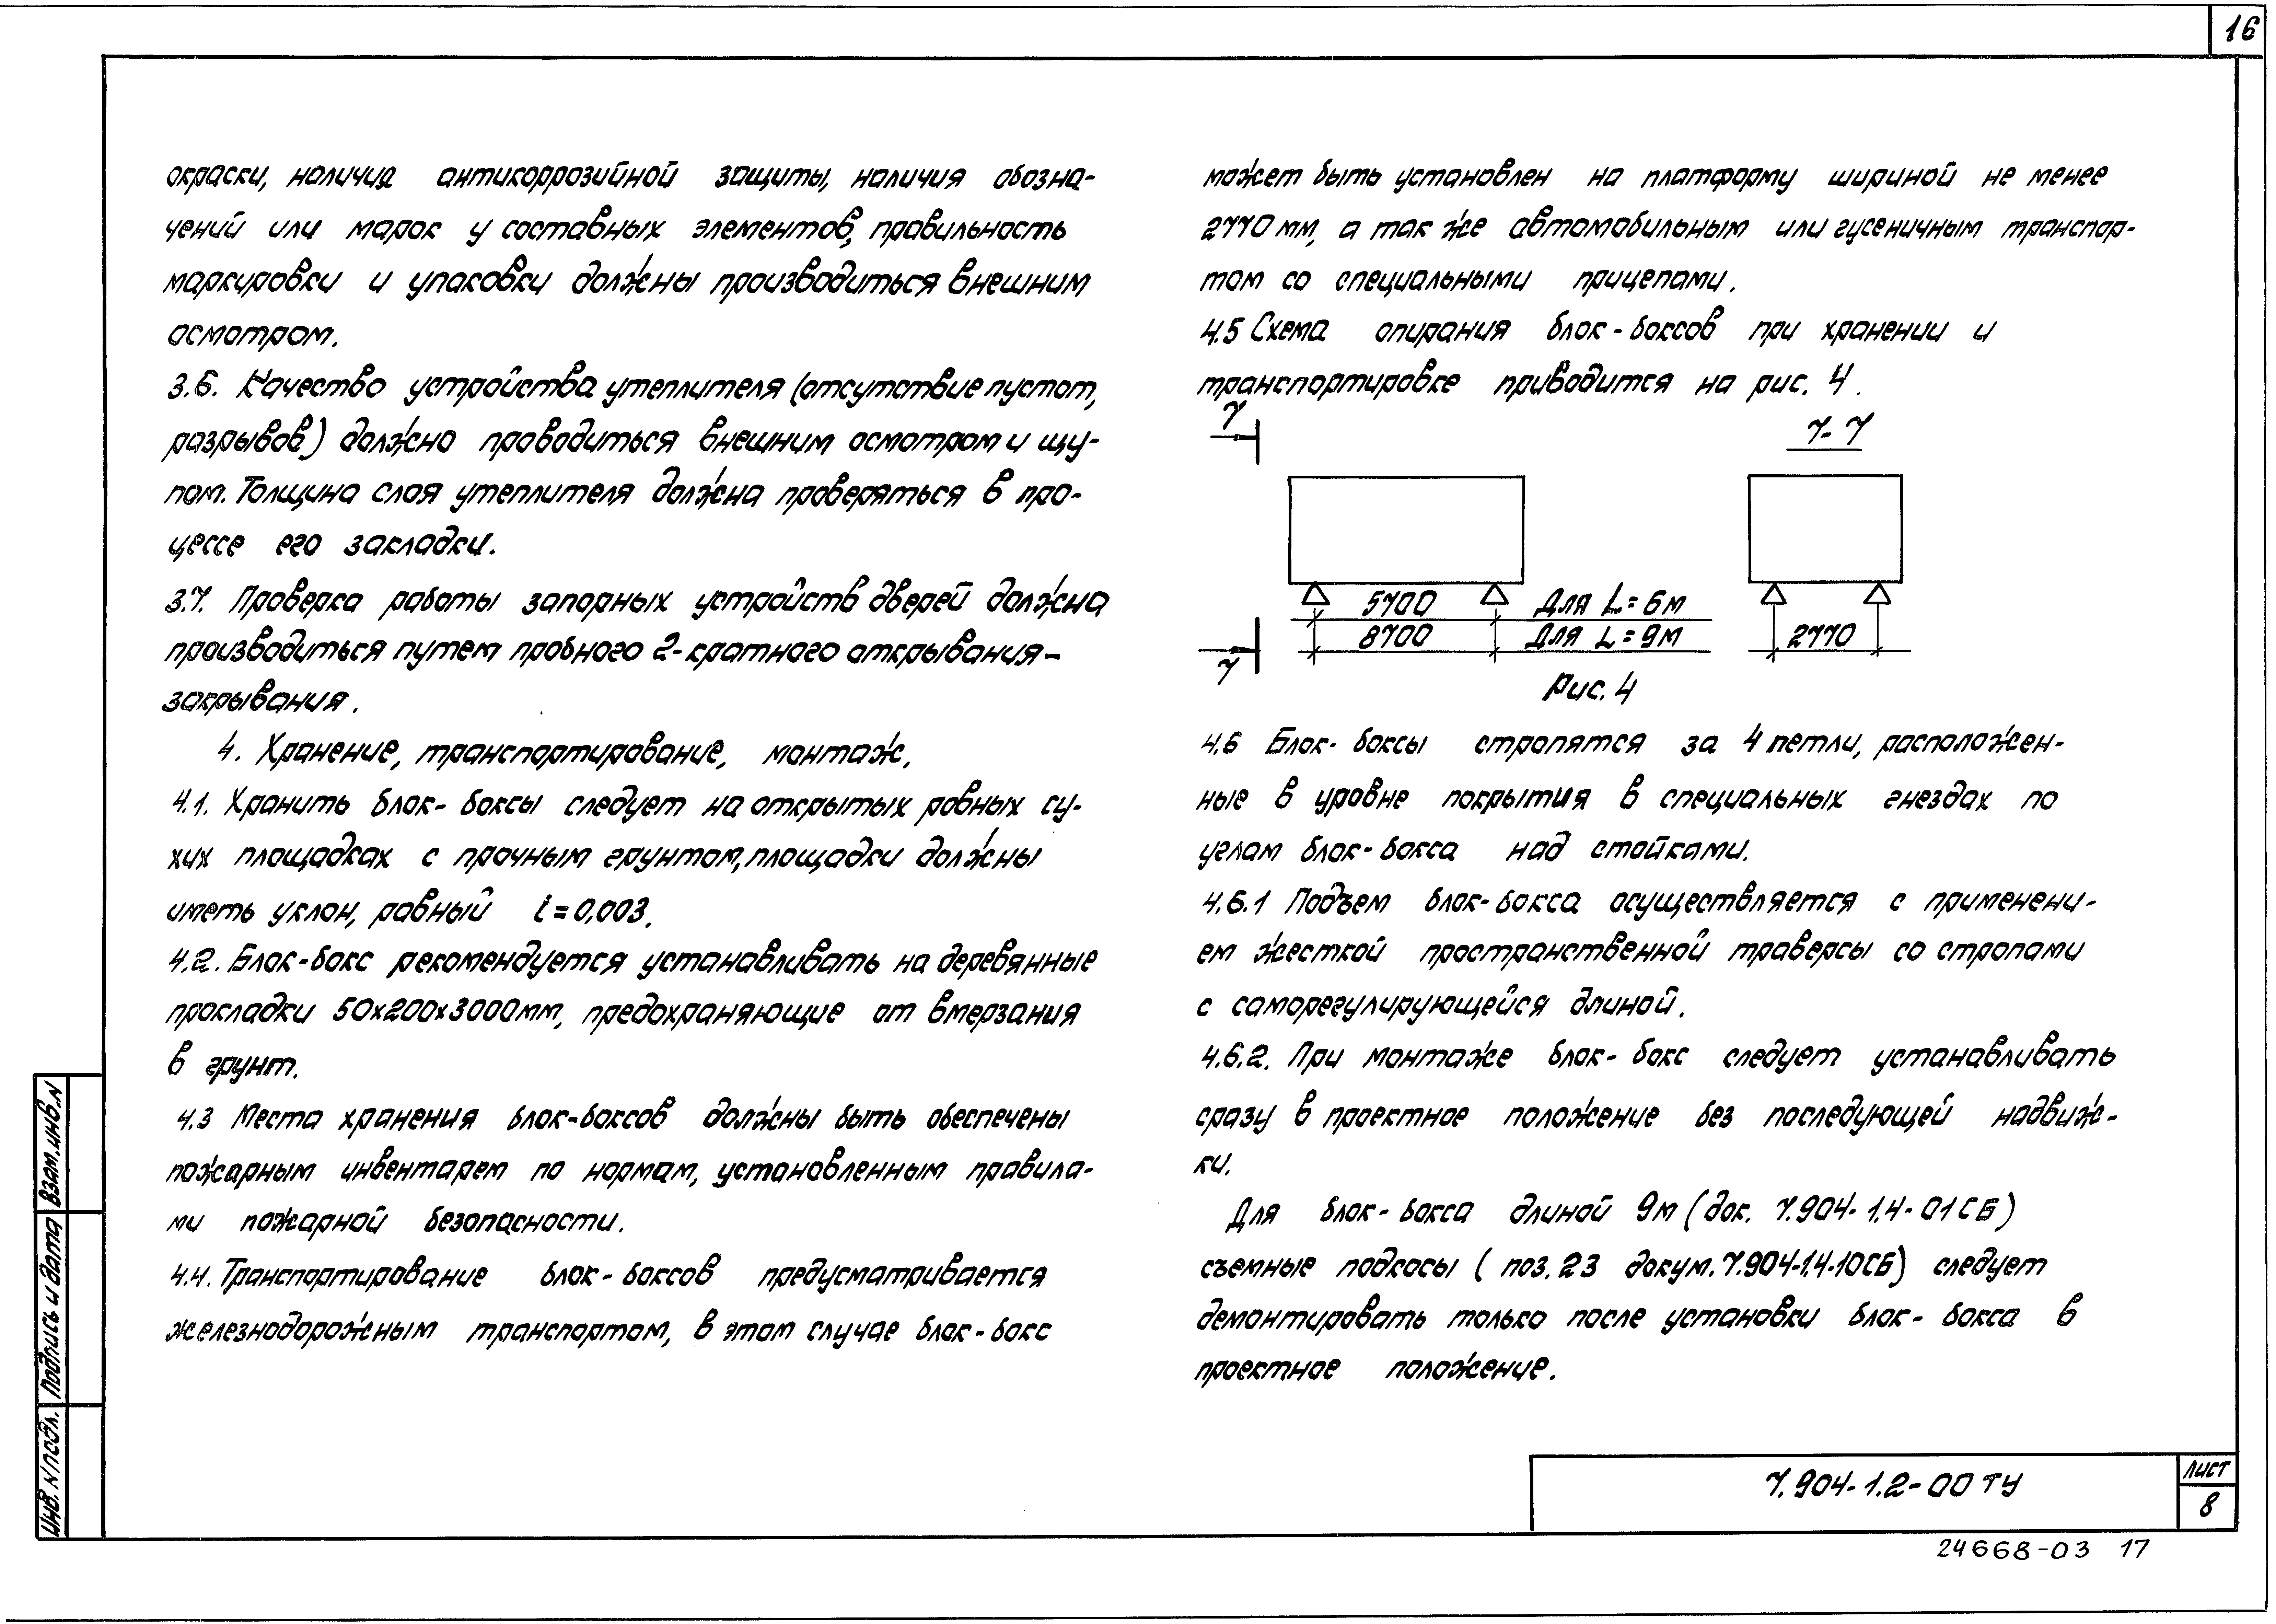 16
окраски, наличия антикоррозийной защиты, наличия обозна-
чений или марок у составных элементов, правильность
маркировки и упаковки должны производиться внешним
осмотром.
3.6. Качество устройства утеплителя (отсутствие пустот,
разрывов) должно проводиться внешним осмотром и щу-
пом. Толщина слоя утеплителя должна проверяться в про-
цессе его закладки.
3.7. Проверка работы запорных устройств дверей должна
производиться путем пробного 2-кратного открывания-
закрывания.
4. Хранение, транспортирование, монтаж.
4.1. Хранить блок-боксы следует на открытых ровных су-
хих площадках с прочным грунтом, площадки должны
иметь уклон, равный i=0,003.
4.2. Блок-бокс рекомендуется устанавливать на деревянные
прокладки 50х200х3000мм, предохраняющие от вмерзания
в грунт.
4.3 Места хранения блок-боксов должны быть обеспечены
пожарным инвентарем по нормам, установленным правила-
ми пожарной безопасности.
4.4. Транспортирование блок-боксов предусматривается
железнодорожным транспортом, в этом случае блок-бокс
может быть установлен на платформу шириной не менее
2770 мм, а так же автомобильным или гусеничным транспор-
том со специальными прицепами.
4.5 Схема опирания блок-боксов при хранении и
транспортировке приводится на рис. 4.
7
7-7
5700 Для L=6м
8700 Для L=9м
2770
7
Рис. 4
4.6 Блок-боксы стропятся за 4 петли, расположен-
ные в уровне покрытия в специальных гнездах по
углам блок-бокса над стойками.
4.6.1 Подъем блок-бокса осуществляется с применени-
ем жесткой пространственной траверсы со стропами
с саморегулирующейся длиной.
4.6.2. При монтаже блок-бокс следует устанавливать
сразу в проектное положение без последующей надвиж-
ки.
Для блок-бокса длиной 9м (док. 7.904-1.4-01СБ)
съемные подкосы (поз. 23 докум. 7.904-1.4-10СБ) следует
демонтировать только после установки блок-бокса в
проектное положение.
Взам. инв. N
Подпись и дата
Инв. N подл.
7.904-1.2-00 ТУ
Лист
8
24668-03 17